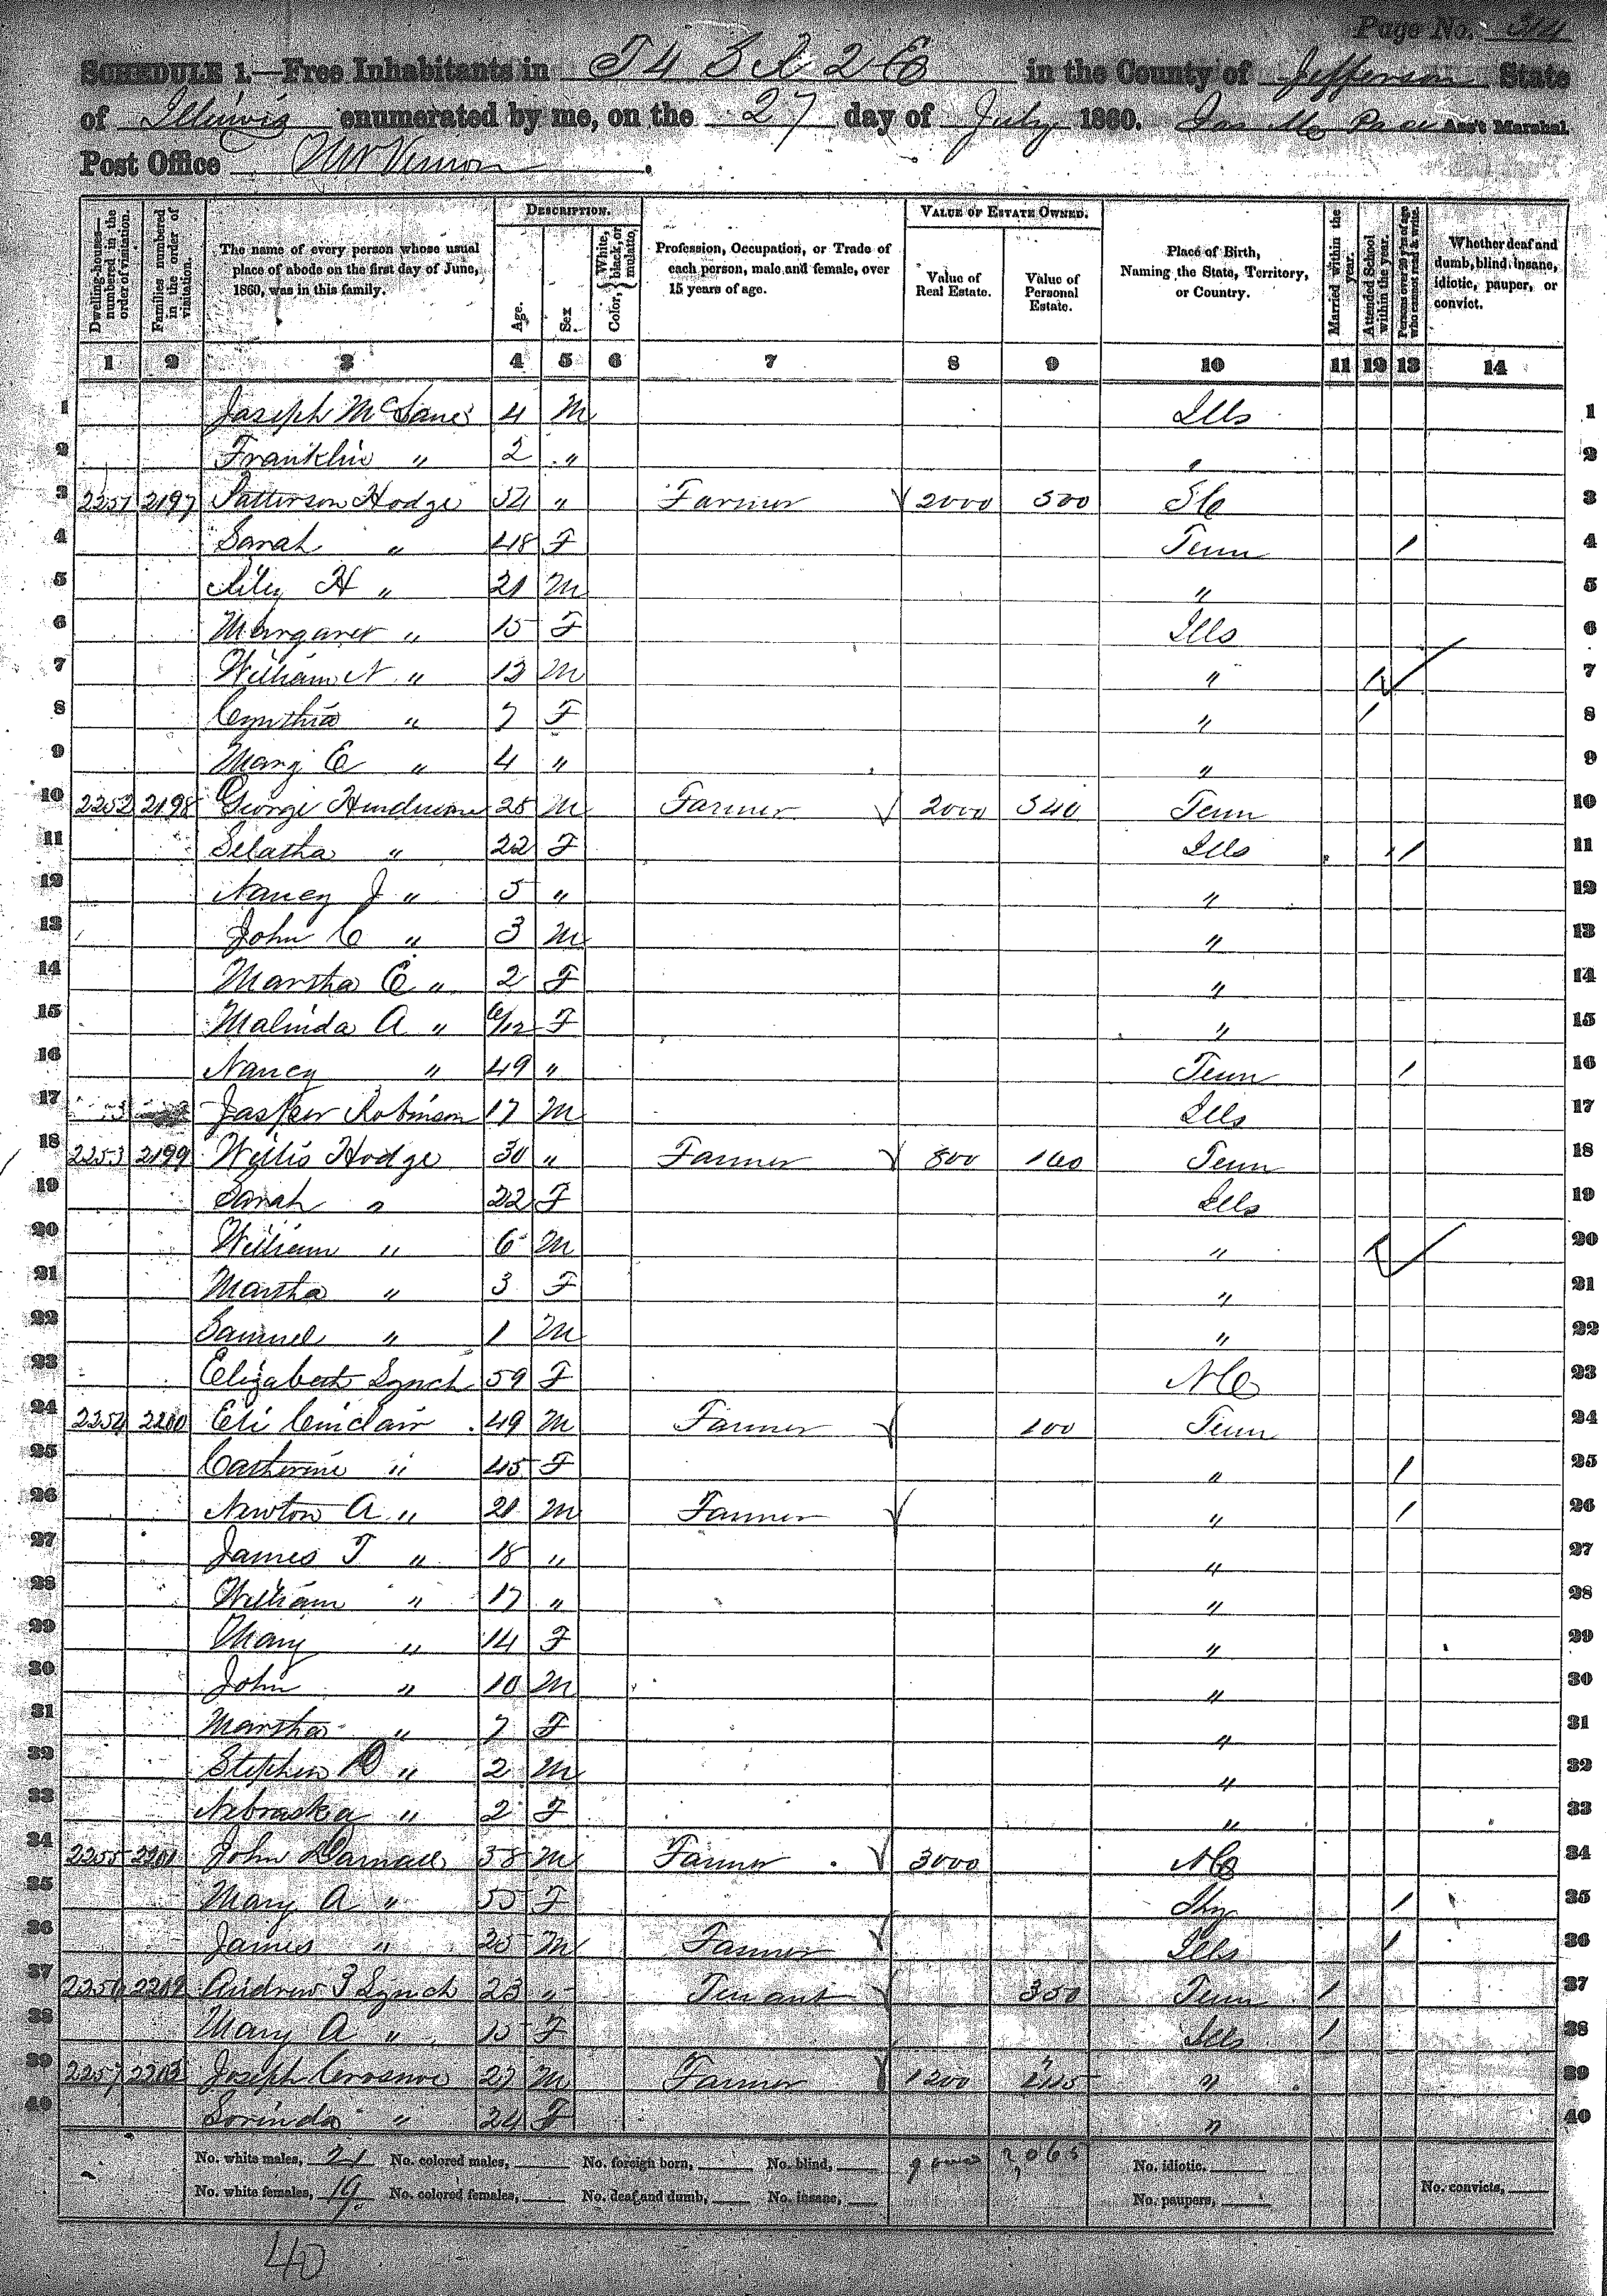 Page No. 314
SCHEDULE 1.—Free Inhabitants in T 4 S R 2 E in the County of Jefferson State
of Illinois enumerated by me, on the 27 day of July 1860. Jas M Pace Ass't Marshal
Post Office Mt Vernon.
Dwelling-houses—numbered in the order of visitation. Families numbered in the order of visitation. The name of every person whose usual place of abode on the first day of June, 1860, was in this family. DESCRIPTION. Age. Sex Color, {White, black, or mulatto. Profession, Occupation, or Trade of each person, male and female, over 15 years of age. VALUE OF ESTATE OWNED. Value of Real Estate. Value of Personal Estate. Place of Birth, Naming the State, Territory, or Country. Married within the year. Attended School within the year. Persons over 20 y'rs of age who cannot read & write. Whether deaf and dumb, blind, insane, idiotic, pauper, or convict.
1 2 3 4 5 6 7 8 9 10 11 12 13 14
1 Joseph McLane 4 M Ills 1
2 Franklin " 2 " " 2
3 2251 2197 Patterson Hodge 54 " Farmer 2000 500 SC 3
4 Sarah " 48 F Tenn / 4
5 Riley H " 21 M " 5
6 Margaret " 15 F Ills 6
7 William N " 13 M " / 7
8 Cynthia " 7 F " / 8
9 Mary E " 4 " " 9
10 2252 2198 George 25 M Farmer 2000 340 Tenn 10
11 Selatha " 22 F Ills / 11
12 Nancy J " 5 " " 12
13 John C " 3 M " 13
14 Martha E " 2 F " 14
15 Malinda A " 6/12 F " 15
16 Nancy " 49 " Tenn / 16
17 Jasper Robinson 17 M Ills 17
18 2253 2199 Willis Hodge 30 " Farmer 800 160 Tenn 18
19 Sarah " 22 F Ills 19
20 William " 6 M " / 20
21 Martha " 3 F " 21
22 Samuel " 1 M " 22
23 Elizabeth Lynch 59 F NC 23
24 2254 2200 Eli Cinclair 49 M Farmer 100 Tenn 24
25 Catherine " 45 F " / 25
26 Newton A " 21 M Farmer " / 26
27 James T " 18 " " 27
28 William " 17 " " 28
29 Mary " 14 F " 29
30 John " 10 M " 30
31 Martha " 7 F " 31
32 Stephen D " 2 M " 32
33 Nebraska " 2 F " 33
34 2255 2201 John Darnall 58 M Farmer 3000 NC 34
35 Mary A " 55 F Ky / 35
36 James " 25 M Farmer Ills / 36
37 2256 2202 Andrew J Lynch 23 " Tenant 350 Tenn / 37
38 Mary A " 15 F Ills / 38
39 2257 2203 Joseph 27 M Farmer 1200 " 39
40 Lorinda " 24 F " 40
No. white males, 21 No. colored males, No. foreign born, No. blind, 2,065 No. idiotic.
No. white females, 19 No. colored females, No. deaf and dumb, No. insane, No. paupers, No. convicts,
40